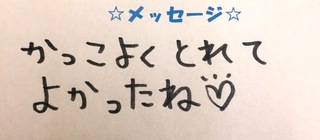 ☆メッセージ☆
かっこよくとれて
よかったね♡